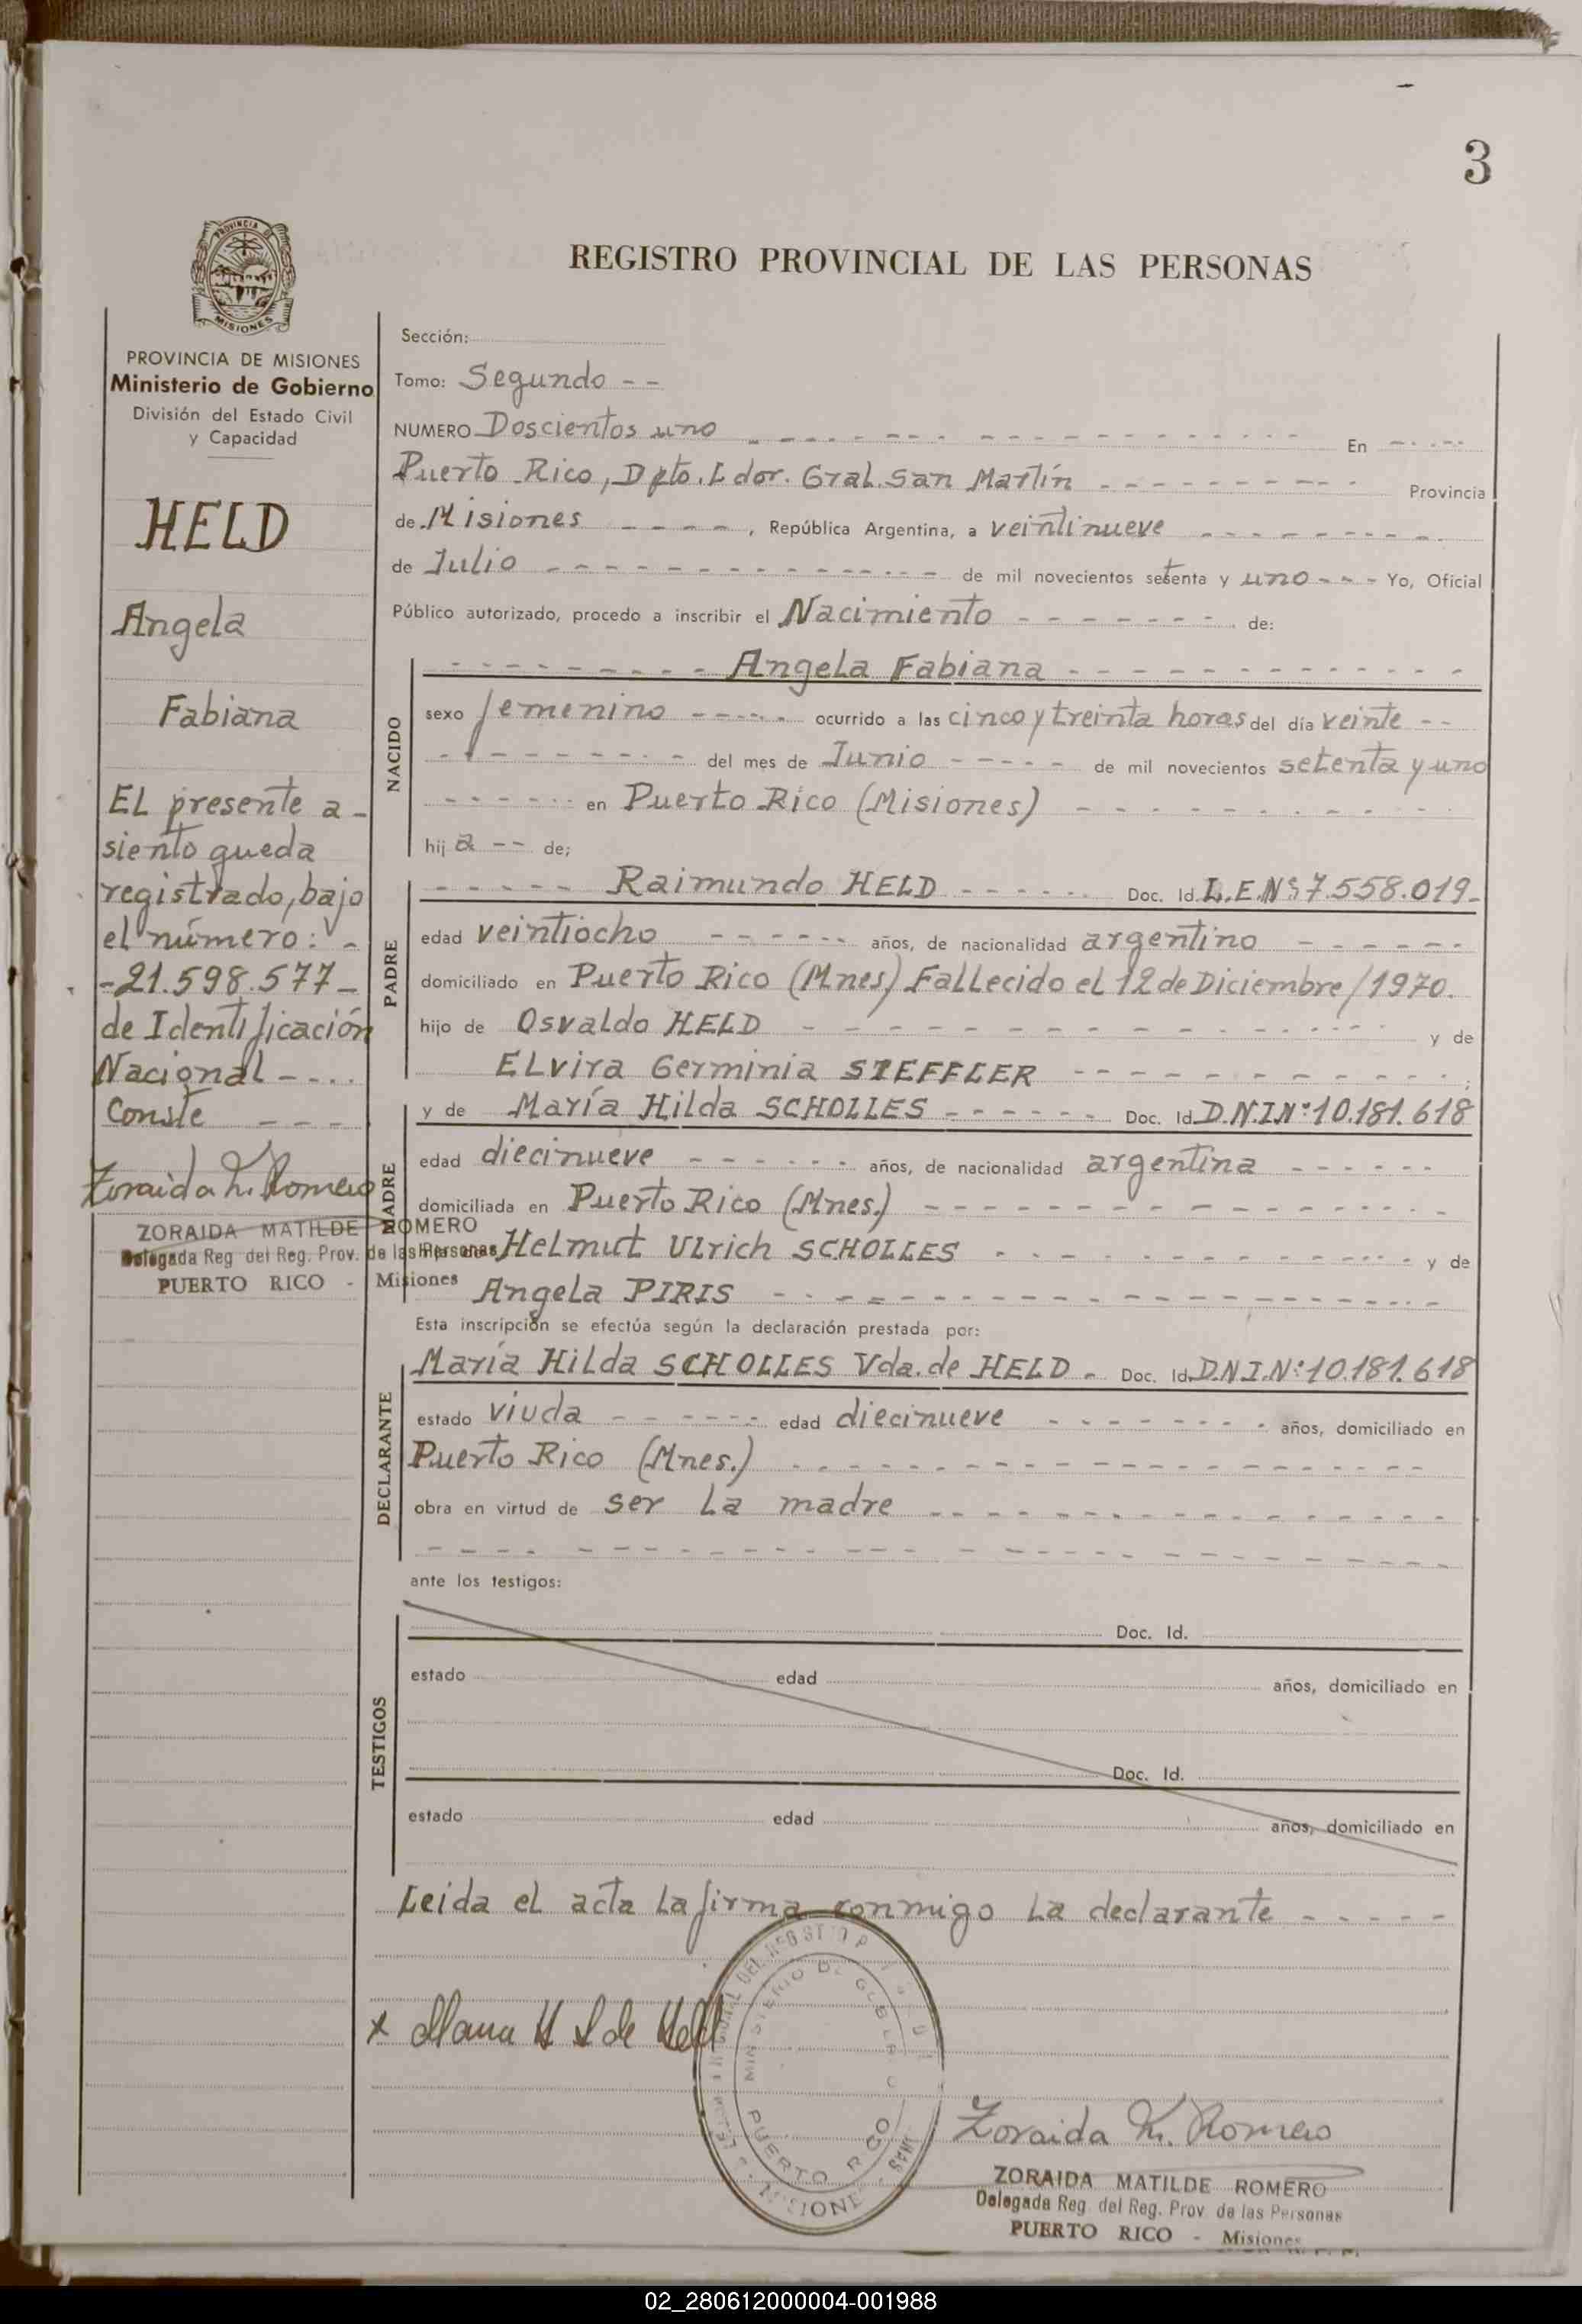 3
PROVINCIA DE
MISIONES
REGISTRO PROVINCIAL DE LAS PERSONAS
PROVINCIA DE MISIONES
Ministerio de Gobierno
División del Estado Civil
y Capacidad
HELD
Angela
Fabiana
EL presente a-
siento queda
registrado, bajo
el número: -
-21.598.577-
de Identificación
Nacional - - - -
Conste - - -
Zoraida M. Romero
ZORAIDA MATILDE ROMERO
Delegada Reg del Reg. Prov. de las Personas
PUERTO RICO - Misiones
Sección:
Tomo: Segundo - -
NUMERO Doscientos uno - - - - En - - - -
Puerto Rico, Dpto. Ldor. Gral. San Martín - - - - Provincia
de Misiones - - - -, República Argentina, a veintinueve - - - -
de Julio - - - - de mil novecientos setenta y uno - - - Yo, Oficial
Público autorizado, procedo a inscribir el Nacimiento - - - - de:
NACIDO
- - - - Angela Fabiana - - - -
sexo femenino - - - - ocurrido a las cinco y treinta horas del día veinte - -
- - - - del mes de Junio - - - - de mil novecientos setenta y uno
- - - - en Puerto Rico (Misiones) - - - -
hija - - de;
PADRE
- - - - Raimundo HELD - - - - Doc. Id. L.E.Nº: 7.558.019-
edad veintiocho - - - - años, de nacionalidad argentino - - - -
domiciliado en Puerto Rico (Mnes) Fallecido el 12 de Diciembre/1970.
hijo de Osvaldo HELD - - - - y de
ELvira Germinia STEFFLER - - - - ;
MADRE
y de María Hilda SCHOLLES - - - - Doc. Id. D.N.I.Nº: 10.181.618
edad diecinueve - - - - años, de nacionalidad argentina - - - -
domiciliada en Puerto Rico (Mnes.) - - - -
hija de Helmut Ulrich SCHOLLES - - - - y de
Angela PIRIS - - - -
Esta inscripción se efectúa según la declaración prestada por:
DECLARANTE
María Hilda SCHOLLES Vda. de HELD - Doc. Id. D.N.I.Nº: 10.181.618
estado viuda - - - - edad diecinueve - - - - años, domiciliado en
Puerto Rico (Mnes.) - - - -
obra en virtud de ser La madre - - - -
- - - -
ante los testigos:
TESTIGOS
Doc. Id.
estado edad años, domiciliado en
Doc. Id.
estado edad años, domiciliado en
Leida el acta La firma conmigo La declarante - - - -
x Maria H S de Held
MINISTERIO DE GOBIERNO
PUERTO RICO
MISIONES
Zoraida M. Romero
ZORAIDA MATILDE ROMERO
Delegada Reg del Reg. Prov de las Personas
PUERTO RICO - Misiones
02_280612000004-001988